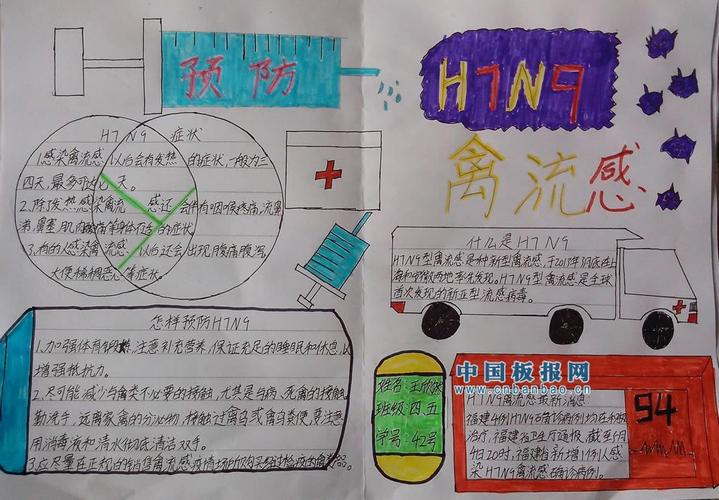 预防
H7N9
禽流感
H7N9 症状
1.感染禽流感,以后会有发热的症状,一般为三
四天,最多可达七天。
2.除了发热感染禽流感还会伴有咽喉疼痛,流鼻
涕,鼻塞,肌肉酸痛等身体不适的症状
3.有的人感染禽流感以后还会出现腹痛腹泻
大便稀稠恶心等症状
什么是H7N9
H7N9型禽流感是种新型禽流感,于2013年3月底在上
海和安徽两地率先发现。H7N9型禽流感是全球
首次发现的新亚型流感病毒。
怎样预防H7N9
1.加强体育锻炼,注意补充营养,保证充足的睡眠和休息,以
增强抵抗力。
2.尽可能减少与禽类不必要的接触,尤其是与病、死禽的接触
勤洗手,远离家禽的分泌物,接触过禽鸟或禽鸟粪便,要注意
用消毒液和清水彻底清洁双手。
3.应尽量在正规的销售
姓名:王欣
班级 四、五
学号 42号
中国板报网
www.cnbanbao.cn
H7N9禽流感最新消息
福建4例H7N9确诊病例均在积极
治疗,福建省卫生厅通报,截至
4日20时,福建省新增1例人感
染H7N9禽流感确诊病例。
94